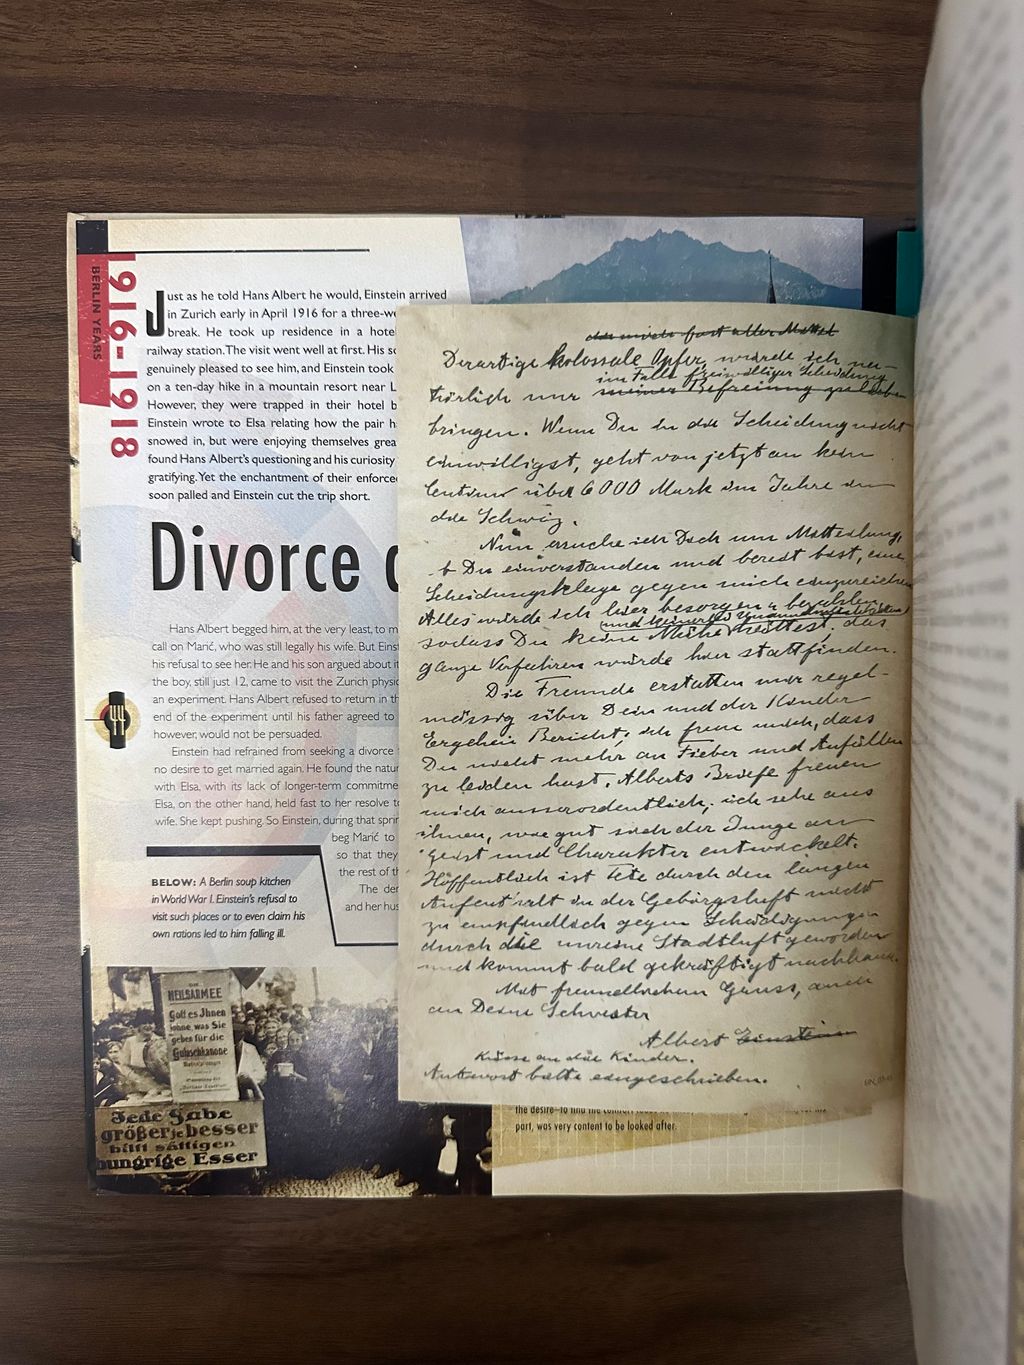 1916–1918
BERLIN YEARS
Just as he told Hans Albert he would, Einstein arrived
in Zurich early in April 1916 for a three-we
break. He took up residence in a hotel
railway station. The visit went well at first. His so
genuinely pleased to see him, and Einstein took
on a ten-day hike in a mountain resort near L
However, they were trapped in their hotel b
Einstein wrote to Elsa relating how the pair h
snowed in, but were enjoying themselves grea
found Hans Albert's questioning and his curiosity
gratifying. Yet the enchantment of their enforce
soon palled and Einstein cut the trip short.
Divorce
Hans Albert begged him, at the very least, to m
call on Marić, who was still legally his wife. But Einst
his refusal to see her. He and his son argued about it
the boy, still just 12, came to visit the Zurich physic
an experiment. Hans Albert refused to return in th
end of the experiment until his father agreed to
however, would not be persuaded.
Einstein had refrained from seeking a divorce
no desire to get married again. He found the natur
with Elsa, with its lack of longer-term commitme
Elsa, on the other hand, held fast to her resolve t
wife. She kept pushing. So Einstein, during that sprin
beg Marić to
so that they
the rest of th
The der
and her hus
BELOW: A Berlin soup kitchen
in World War I. Einstein's refusal to
visit such places or to even claim his
own rations led to him falling ill.
HEILSARMEE
Gott es Ihnen
ohne, was Sie
geben für die
Gulaschkanone
Jede Gabe
größer je besser
hilft sättigen
hungrige Esser
Derartige kolossale Opfer würde ich na-
im Falle freiwilliger Scheidung
türlich nur
bringen. Wenn Du in die Scheidung nicht
einwilligst, geht von jetzt an kein
Centime über 6000 Mark im Jahre in
die Schweiz.
Nun ersuche ich Dich um Mitteilung,
b Du einverstanden und bereit bist, eine
Scheidungsklage gegen mich einzureichen.
Alles würde ich hier besorgen u bezahlen
sodass Du keine Mühe hättest; das
ganze Verfahren würde hier stattfinden.
Die Freunde erstatten mir regel-
mässig über Dein und der Kinder
Ergehen Bericht; ich freue mich, dass
Du nicht mehr an Fieber und Anfällen
zu leiden hast. Alberts Briefe freuen
mich ausserordentlich; ich sehe aus
ihnen, wie gut sich der Junge an
Geist und Charakter entwickelt.
Hoffentlich ist Tete durch den langen
Aufenthalt in der Gebirgsluft nicht
zu empfindlich gegen Schädigungen
durch die unreine Stadtluft geworden
und kommt bald gekräftigt nachhause.
Mit freundlichem Gruss, auch
an Deine Schwester
Albert Einstein
Küsse an die Kinder.
Antwort bitte eingeschrieben.
part, was very content to be looked after.